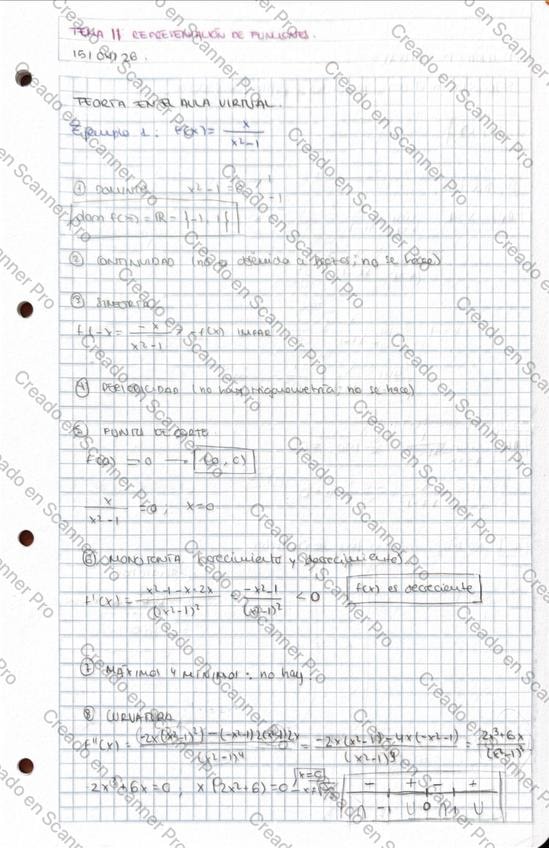 TEMA 11 REPRESENTACIÓN DE FUNCIONES.
15/04/26.
TEORÍA EN EL AULA VIRTUAL.
Ejemplo 1: f(x) = x / x²-1
① DOMINIO x²-1=0 1 -1
dom f(x) = ℝ - {-1, 1}
② CONTINUIDAD (no a trozos; no se hace)
③ SIMETRÍA
f(-x = -x / x²-1 = -f(x) IMPAR
④ PERIODICIDAD (no hay trigonometría, no se hace)
⑤ PUNTOS DE CORTE
f(0) = 0 → (0,0)
x / x²-1 = 0; x=0
⑥ MONOTONÍA (crecimiento y decrecimiento)
f'(x) = x²-1-x·2x / (x²-1)² = -x²-1 / (x²-1)² < 0 f(x) es decreciente
⑦ MÁXIMOS Y MÍNIMOS: no hay.
⑧ CURVATURA
f''(x) = (-2x(x²-1)²) - (-x²-1)2(x²-1)2x / (x²-1)⁴ = -2x(x²-1) - 4x(-x²-1) / (x²-1)³ = 2x³+6x / (x²-1)³
2x³+6x=0, x(2x²+6)=0 x=0
- + - +
∩ -1 ∪ 0 ∩ 1 ∪
Creado en Scanner Pro